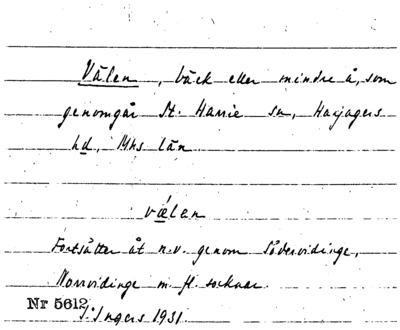 Välen, bäck eller mindre å, som
genomgår St. Harrie sn, Harjagers
hd, Mhs län
vælen
Fortsätter åt n.v. genom Södervidinge,
Norrvidinge m. fl. socknar.
Nr 5612
I. Ingers 1931.